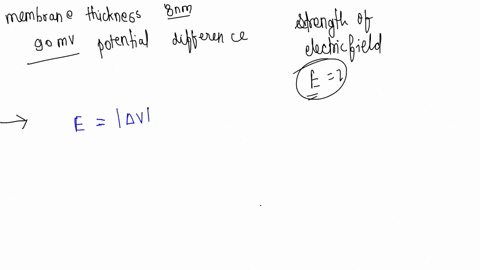 membrane thickness 8nm
90mv potential difference
strength of
electric field
E = ?
E = |ΔV|